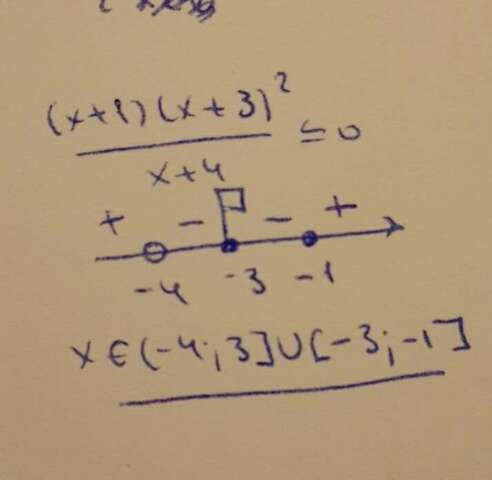 (x+1)(x+3)²
≤ 0
x+4
+ - - +
-4 -3 -1
x∈(-4;3]∪[-3;-1]